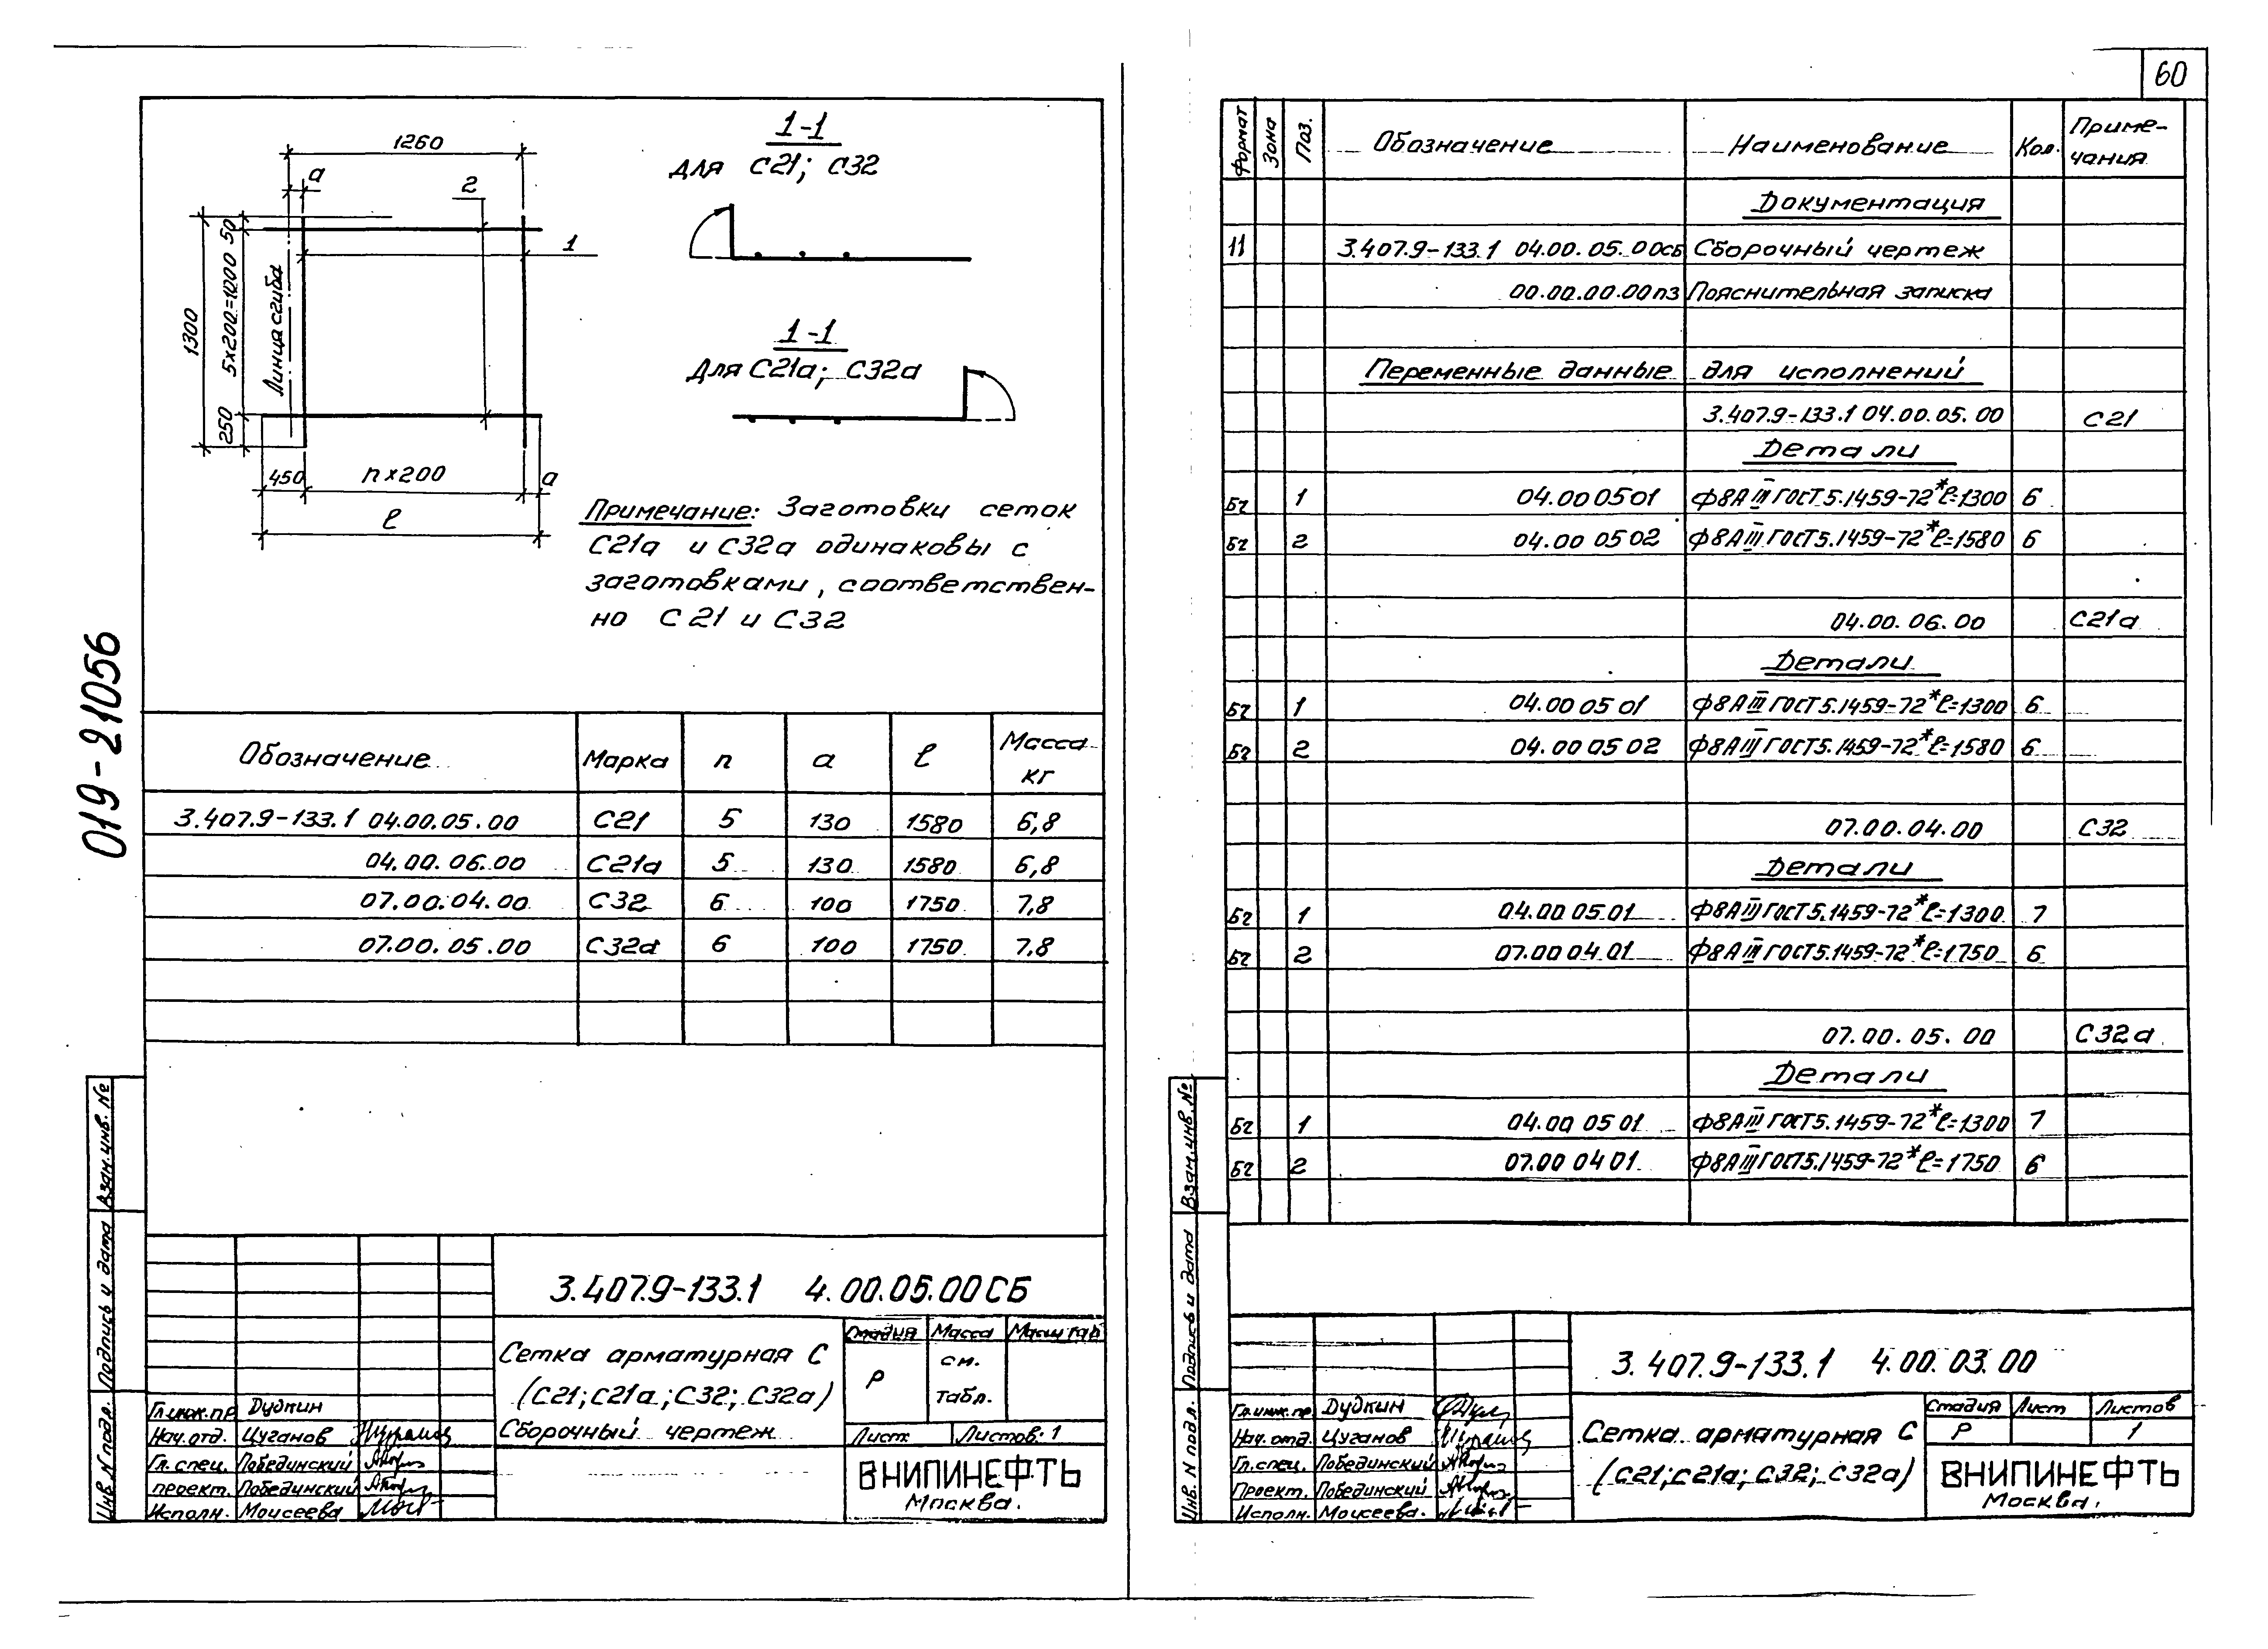 60
1260
а
2
1
1300
250 5х200=1000 50
Линия сгиба
450 п х 200 а
ℓ
1-1
для С21; С32
1-1
Для С21а; С32а
Примечание: Заготовки сеток
С21а и С32а одинаковы с
заготовками, соответствен-
но С21 и С32
019-21056
Обозначение Марка п а ℓ Масса кг
3.407.9-133.1 04.00.05.00 С21 5 130 1580 6,8
04.00.06.00 С21а 5 130 1580 6,8
07.00.04.00 С32 6 100 1750 7,8
07.00.05.00 С32а 6 100 1750 7,8
Инв. N подл. Подпись и дата Взам. инв. №
3.407.9-133.1 4.00.05.00СБ
Сетка арматурная С
(С21; С21а; С32; С32а)
Сборочный чертеж
Стадия Масса Масштаб
Р см. табл.
Лист Листов: 1
ВНИПИНЕФТЬ
Москва.
Гл.инж.пр Дудкин
Нач.отд. Цуганов
Гл. спец. Побединский
проект. Побединский
Исполн. Моисеева
Формат Зона Поз. Обозначение Наименование Кол. Приме-
чания
Документация
11 3.407.9-133.1 04.00.05.00СБ Сборочный чертеж
00.00.00.00ПЗ Пояснительная записка
Переменные данные для исполнений
3.407.9-133.1 04.00.05.00 С21
Детали
Бч 1 04.00 05 01 Ф8АIII ГОСТ 5.1459-72* ℓ=1300 6
Бч 2 04.00 05 02 Ф8АIII ГОСТ 5.1459-72* ℓ=1580 6
04.00.06.00 С21а
Детали
Бч 1 04.00 05 01 Ф8АIII ГОСТ 5.1459-72* ℓ=1300 6
Бч 2 04.00 05 02 Ф8АIII ГОСТ 5.1459-72* ℓ=1580 6
07.00.04.00 С32
Детали
Бч 1 04.00 05.01 Ф8АIII ГОСТ 5.1459-72* ℓ=1300 7
Бч 2 07.00 04 01 Ф8АIII ГОСТ 5.1459-72* ℓ=1750 6
07.00.05.00 С32а
Детали
Бч 1 04.00 05 01 Ф8АIII ГОСТ 5.1459-72* ℓ=1300 7
Бч 2 07.00 04 01 Ф8АIII ГОСТ 5.1459-72* ℓ=1750 6
Инв. N подл. Подпись и дата Взам. инв. №
3.407.9-133.1 4.00.03.00
Сетка арматурная С
(С21; С21а; С32; С32а)
Стадия Лист Листов
Р 1
ВНИПИНЕФТЬ
Москва.
Гл.инж.пр. Дудкин
Нач.отд. Цуганов
Гл.спец. Побединский
Проект. Побединский
Исполн. Моисеева.